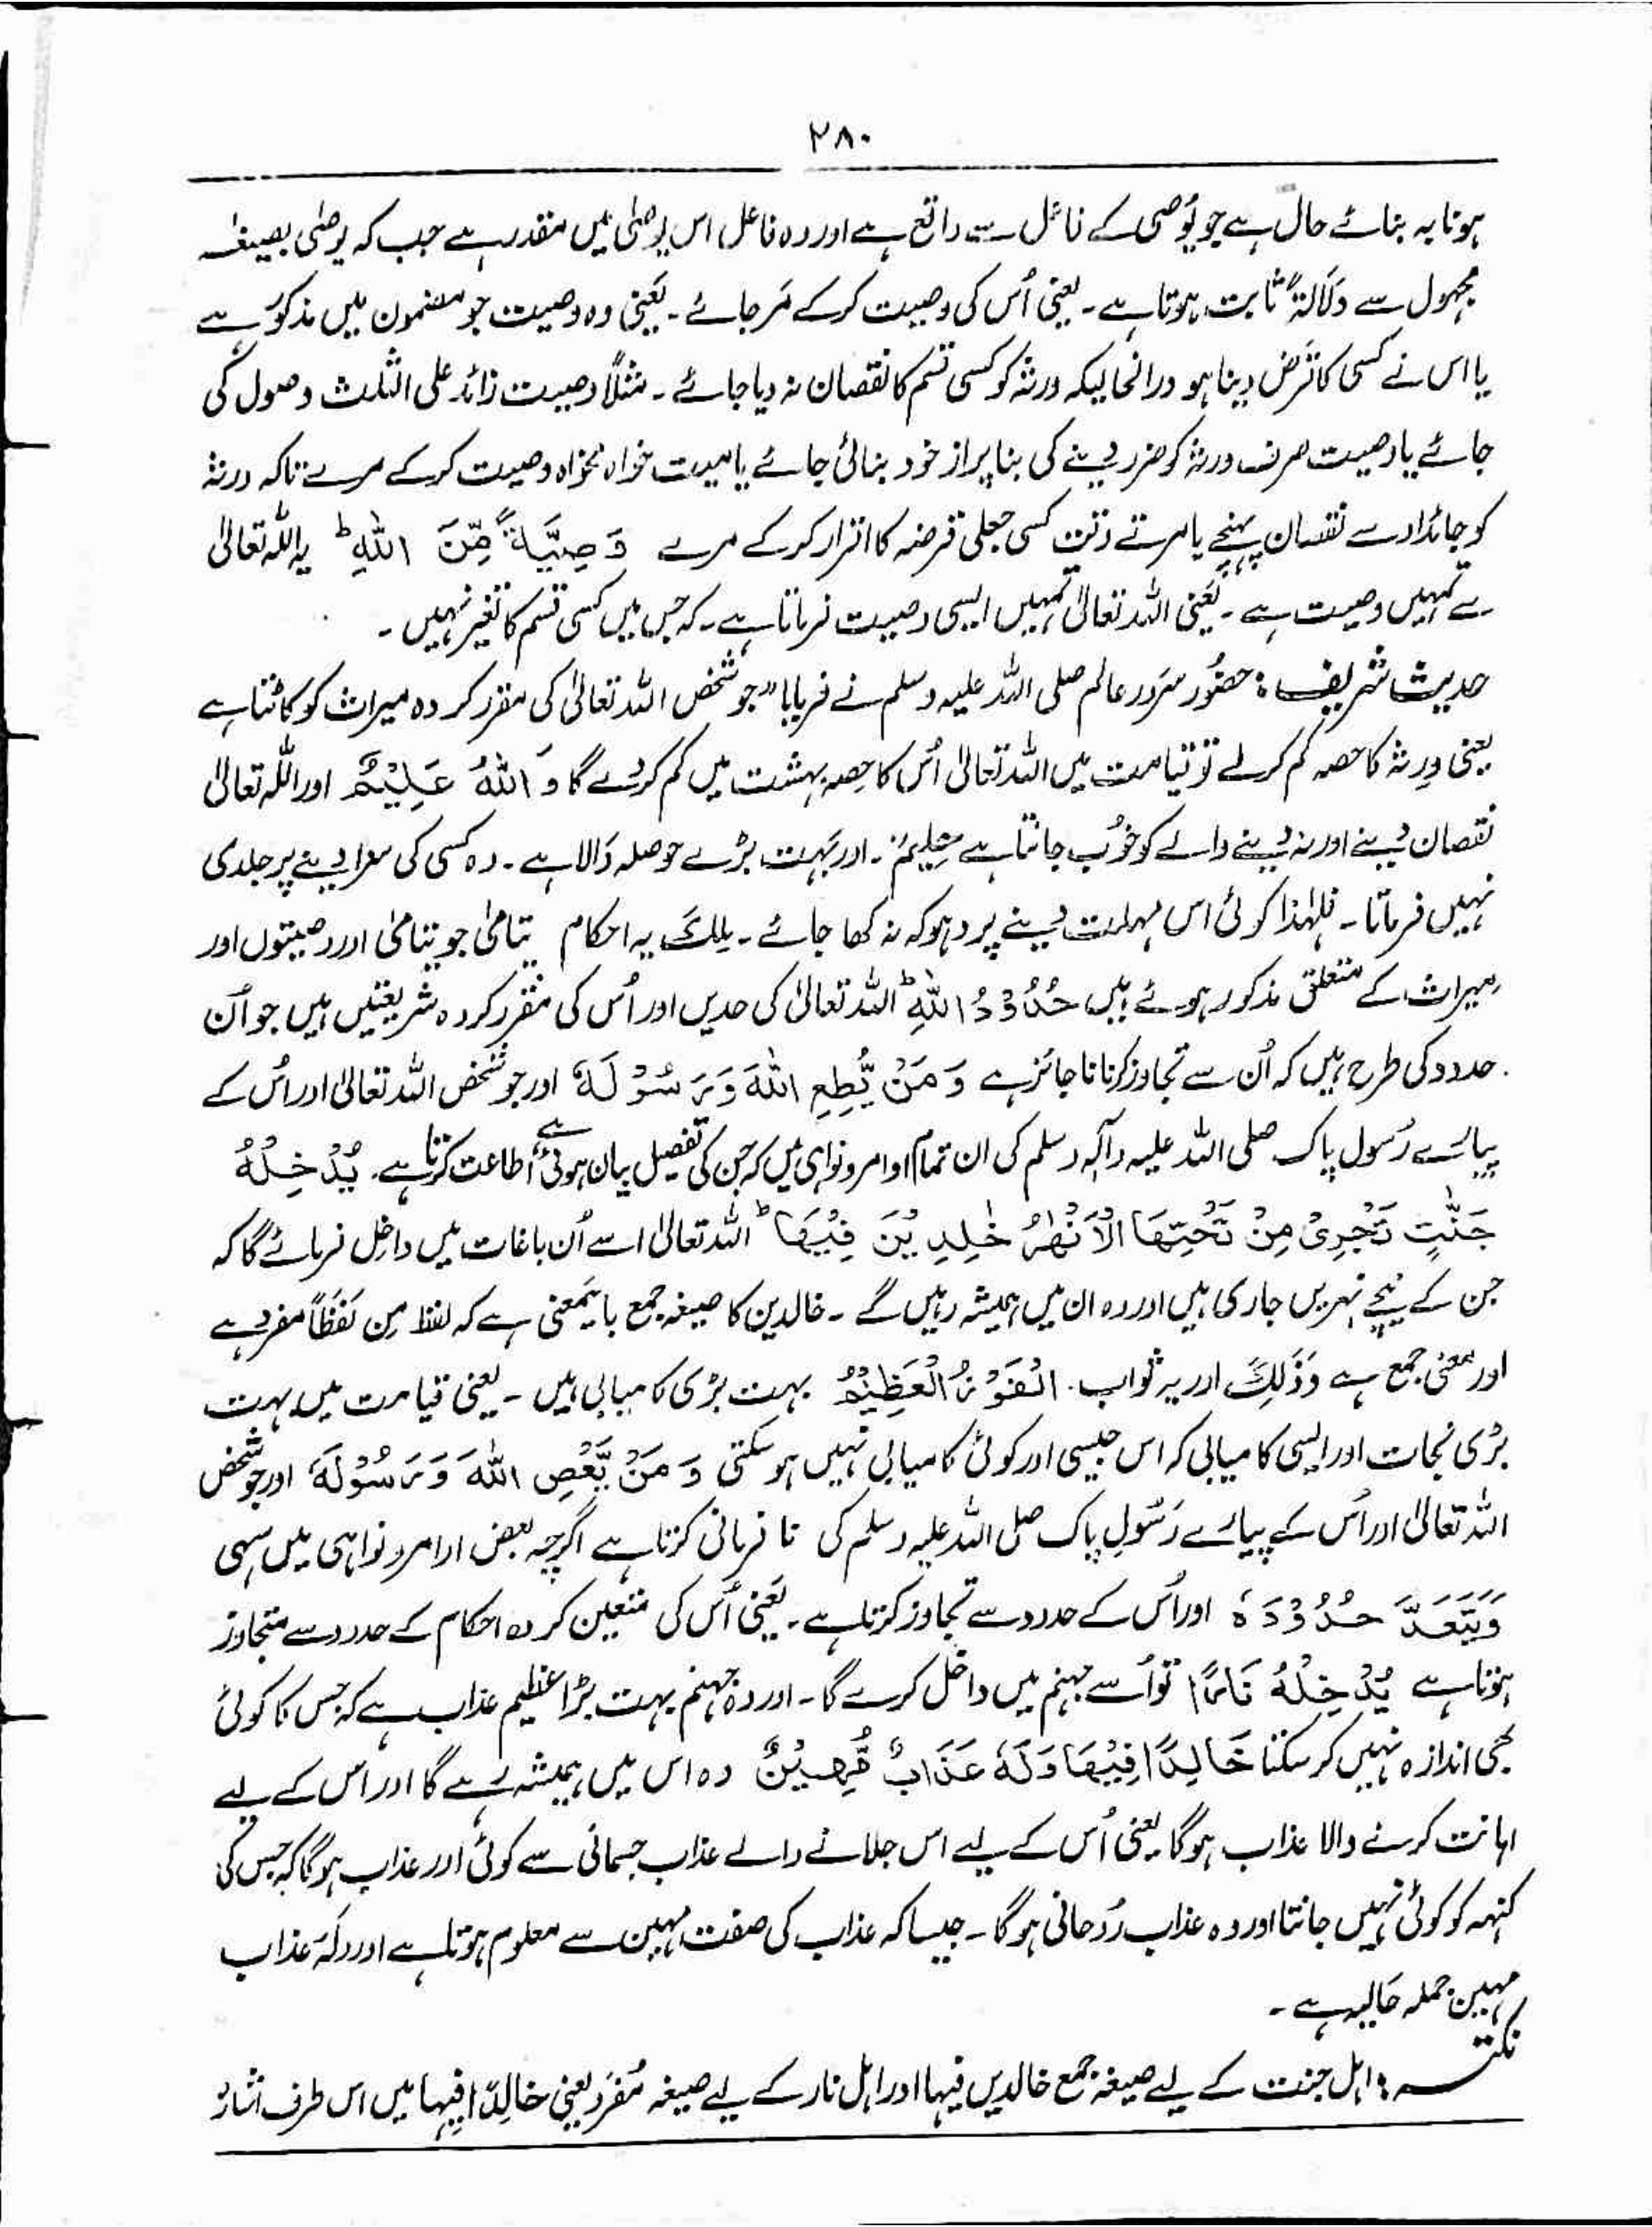 ۲۸۰
ہونا بہ بنائے حال ہے جو یُوصی کے فاعل سے واقع ہے اور وہ فاعل اس یوصیٰ میں مقدر ہے جب کہ یوصٰی بصیغہ
مجہول سے دلالۃً ثابت ہوتا ہے۔ یعنی اُس کی وصیت کرکے مَر جائے۔ یعنی وہ وصیت جو مضمون میں مذکور ہے
یا اس نے کسی کا قرض دینا ہو درانحالیکہ ورثہ کو کسی قسم کا نقصان نہ دیا جائے۔ مثلاً وصیت زائد علی الثلث وصول کی
جائے یا وصیت صرف ورثہ کو ضرر دینے کی بنا پر از خود بنائی جائے یا میت خواہ نخواہ وصیت کرکے مرے تاکہ ورثہ
کو جائداد سے نقصان پہنچے یا مرتے وقت کسی جعلی قرضہ کا اقرار کرکے مرے وَصِیَّۃً مِّنَ اللّٰہِ ؕ یہ اللہ تعالیٰ
سے تمہیں وصیت ہے۔ یعنی اللہ تعالیٰ تمہیں ایسی وصیت فرماتا ہے۔ کہ جس میں کسی قسم کا تغیر نہیں۔
حدیث شریف : حضُور سرَور عالم صلی اللہ علیہ وسلم نے فرمایا "جو شخص اللہ تعالیٰ کی مقرر کردہ میراث کو کاٹتا ہے
یعنی وِرثہ کا حصہ کم کرلے تو قیامت میں اللہ تعالیٰ اُس کا حِصہ بہشت میں کم کردے گا وَ اللّٰہُ عَلِیْمٌ اور اللہ تعالیٰ
نقصان دینے اور نہ دینے والے کو خُوب جانتا ہے حَلِیْمٌ۔ اور بَہت بڑے حوصلہ وَالا ہے۔ وہ کسی کی سزا دینے پر جلدی
نہیں فرماتا۔ فلہٰذا کوئی اس مہلت دینے پر دہوکہ نہ کھا جائے۔ تِلْکَ یہ احکام یتامیٰ جو یتامیٰ اور وصیتوں اور
میراث کے متعلق مذکور ہوئے ہیں حُدُوْدُ اللّٰہِ ؕ اللہ تعالیٰ کی حدیں اور اُس کی مقرر کردہ شریعتیں ہیں جو اُن
حدود کی طرح ہیں کہ اُن سے تجاوز کرنا ناجائز ہے وَ مَنْ یُّطِعِ اللّٰہَ وَ رَسُوْلَہٗ اور جو شخص اللہ تعالیٰ اور اُس کے
پیارے رُسول پاک صلی اللہ علیہ وآلہ وسلم کی ان تمام اوامر و نواہی میں کہ جن کی تفصیل بیان ہوئی ہے اطاعت کرتا ہے۔ یُدْخِلْہُ
جَنّٰتٍ تَجْرِیْ مِنْ تَحْتِہَا الْاَنْھٰرُ خٰلِدِیْنَ فِیْہَا ؕ اللہ تعالیٰ اسے اُن باغات میں داخل فرمائے گا کہ
جن کے نیچے نہریں جاری ہیں اور وہ ان میں ہمیشہ رہیں گے۔ خالدین کا صیغہ جمع بایمعنی ہے کہ لفظ مِن لَفظَاً مفرد ہے
اور معنیً جمع ہے وَذٰلِکَ اور یہ ثواب۔ الْفَوْزُ الْعَظِیْمُ بہت بڑی کامیابی ہیں۔ یعنی قیامت میں بہت
بڑی نجات اور ایسی کامیابی کہ اس جیسی اور کوئی کامیابی نہیں ہو سکتی وَ مَنْ یَّعْصِ اللّٰہَ وَ رَسُوْلَہٗ اور جو شخص
اللہ تعالیٰ اور اُس کے پیارے رَسُولِ پاک صلی اللہ علیہ وسلم کی نافرمانی کرتا ہے اگرچہ بعض اوامر و نواہی میں سہی
وَیَتَعَدَّ حُدُوْدَہٗ اور اُس کے حدود سے تجاوز کرتا ہے۔ یعنی اُس کی متعین کردہ احکام کے حدود سے متجاوز
ہوتا ہے یُدْخِلْہُ نَارًا تو اُسے جہنم میں داخل کرے گا۔ اور وہ جہنم بہت بڑا عظیم عذاب ہے کہ جس کا کوئی
بھی اندازہ نہیں کر سکتا خَالِدًا فِیْہَا وَلَہٗ عَذَابٌ مُّہِیْنٌ وہ اس میں ہمیشہ رہے گا اور اس کے لیے
اہانت کرنے والا عذاب ہوگا یعنی اُس کے لیے اس جلانے والے عذاب جسمانی سے کوئی اور عذاب ہوگا کہ جس کی
کنہہ کو کوئی نہیں جانتا اور وہ عذاب رُوحانی ہوگا۔ جیسا کہ عذاب کی صفت مہین سے معلوم ہوتا ہے اور ولَہٗ عَذاب
مہین جملہ حَالیہ ہے۔
نکتہ : اہل جنت کے لیے صیغہ جمع خالدیں فیہا اور اہل نار کے لیے صیغہ مُفرَد یعنی خالِدًا فِیہا میں اس طرف اشارہ